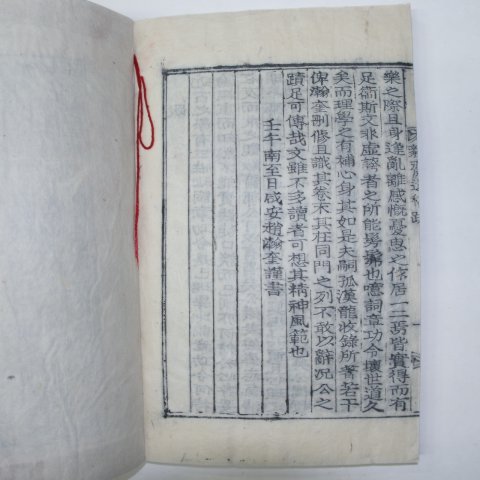 樂之際且身逢亂離感慨憂患之作居一二焉皆實得而有
足衛斯文非虛辭者之所能髣髴也噫詞章功令壞世道久
矣而理學之有補心身其如是夫嗣孤漢龍收錄所著若干
俾瀚奎刪修且識其卷末其在同門之列不敢以辭況公之
蹟足可傳哉文雖不多讀者可想其精神風範也
壬午南至日咸安趙瀚奎謹書